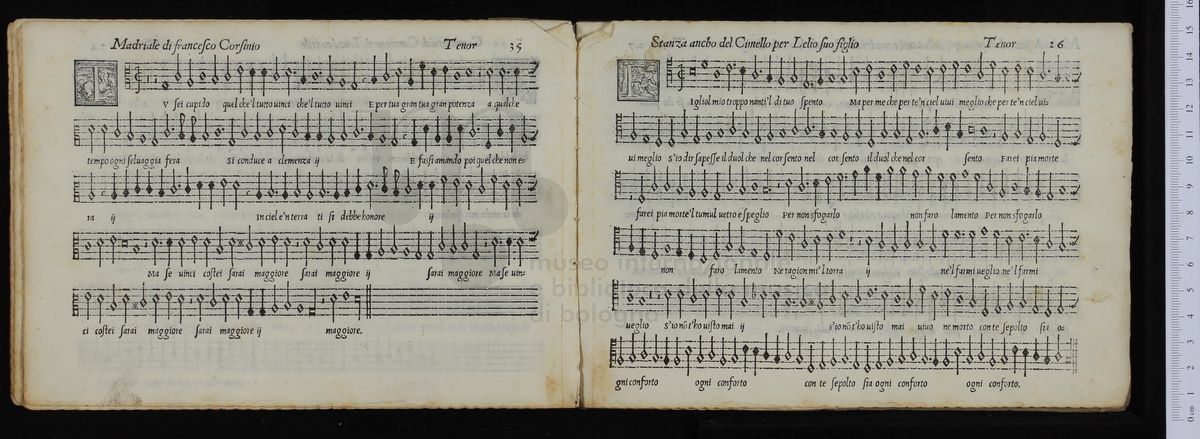 Madriale di francesco Corsinio Tenor 35
V sei cupido quel che'l tutto uinci che'l tutto uinci E per tua gran tua gran potenza a qualche
tempo ogni seluaggia fera Si conduce a clemenza ij E fassi amando poi quel che non e
ra ij In ciel e'n terra ti si debbe honore ij
Ma se uinci costei sarai maggiore sarai maggiore ij sarai maggiore Ma se uin
ci costei sarai maggiore sarai maggiore ij maggiore.
Stanza ancho del Cimello per Lelio suo figlio Tenor 26
Igliol mio troppo nanti'l di tuo spento Ma per me che per te'n ciel uiui meglio che per te'n ciel uiu
ui meglio s'io dir sapesse il duol che nel cor sento nel cor sento il duol che nel cor sento Farei pia morte
farei pia morte'l tumul uetro e speglio Per non sfogarlo non faro lamento Per non sfogarlo
non faro lamento Ne ragion mi'l torra ij ne'l farmi ueglio ne'l farmi
ueglio s'io nō t'ho uisto mai ij s'io nō t'ho uisto mai uiuo ne morto con te sepolto sia o
gni conforto ogni conforto con te sepolto sia ogni conforto ogni conforto.
museo internazionale
e biblioteca della musica
di bologna
0 cm 1 2 3 4 5 6 7 8 9 10 11 12 13 14 15 16